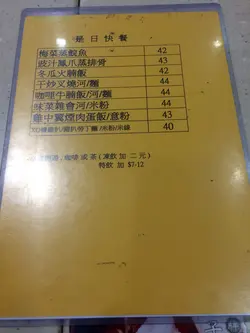 是日快餐
梅菜蒸鯇魚 42
豉汁鳳爪蒸排骨 43
冬瓜火腩飯 42
干炒叉燒河/麵 44
咖哩牛腩飯/河/麵 44
味菜雜會河/米粉 44
雞中翼煙肉蛋飯/意粉 43
丁麵/米粉/米線 40
咖啡 或 茶 (凍飲 加 二 元)
特飲 加 $7-12